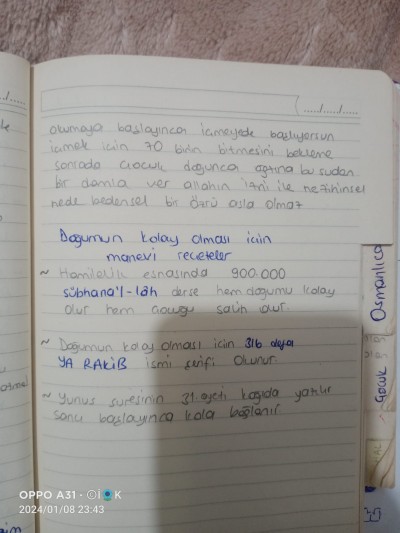 ...../...../.....
okumaya başlayınca içmeyede başlıyorsun
içmek için 70 binin bitmesini bekleme
sonrada çocuk doğunca ağzına bu sudan
bir damla ver allahın izni ile ne zihinsel
nede bedensel bir özrü asla olmaz
Doğumun kolay olması için
manevi reçeteler
~ Hamilelik esnasında 900.000
sübhana'l-lâh derse hem doğumu kolay
olur hem çocuğu salih olur.
~ Doğumun kolay olması için 316 defa
YA RAKİB ismi şerifi okunur.
~ Yunus suresinin 31. ayeti kağıda yazılır
sancı başlayınca kola bağlanır.
Osmanlıca
Çocuk
OPPO A31
2024/01/08 23:43